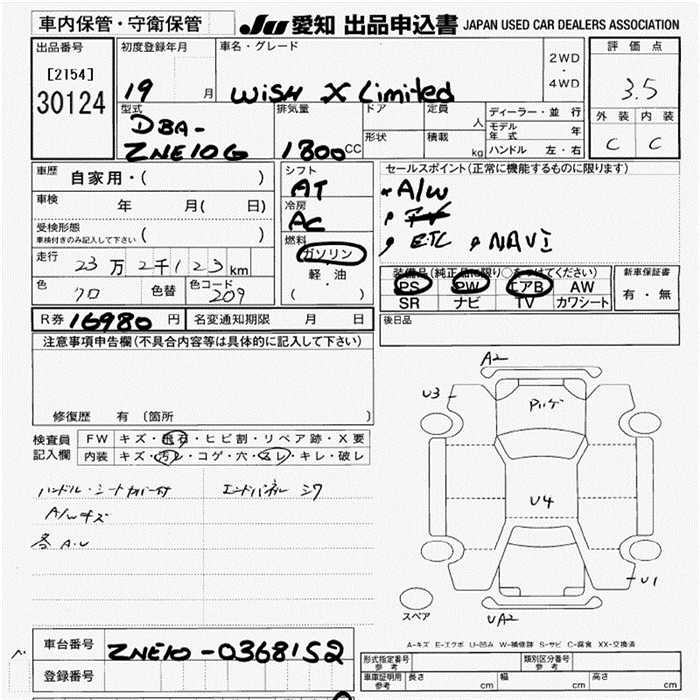 車内保管・守衛保管
JU 愛知 出品申込書 JAPAN USED CAR DEALERS ASSOCIATION
出品番号 初度登録年月 車名・グレード 2WD ・ 4WD 評価点
[2154]
30124 19 月 WiSH X Limited 3.5
型式 排気量 ドア 定員 人 ディーラー・並行 外装 内装
DBA- 形状 積載 kg モデル年式 年 C C
ZNE10G 1800 CC ハンドル 左・右
車歴 自家用・( ) シフト AT セールスポイント(正常に機能するものに限ります)
車検 年 月( 日) 冷房 AC A/W
受検形態 ( )
車検付きのみ記入して下さい
燃料 ガソリン ETC NAVi
走行 23万2千123km 軽・油
色 クロ 色替 色コード 209 ( )
装備品(純正品に限り○をつけてください) 新車保証書
PS PW エアB AW 有・無
SR ナビ TV カワシート
R券 16980円 名変通知期限 月 日 後日品
注意事項申告欄(不具合内容等は具体的に記入して下さい)
修復歴 有 (箇所 )
A2
U3
検査員記入欄 FW キズ・飛石・ヒビ割・リペア跡・X要
内装 キズ・汚レ・コゲ・穴・スレ・キレ・破レ
ハンドル・シートカバー付 エンドパネル
A/Wキズ
各A.U
U4
U1
スペア UA2
A-キズ E-エクボ U-凹み W-補修跡 S-サビ C-腐食 XX-交換済
車台番号 ZNE10-0368152
登録番号
形式指定番号 参考 類別区分番号 参考
車庫証明用 参考 長さ cm 幅 cm 高さ cm